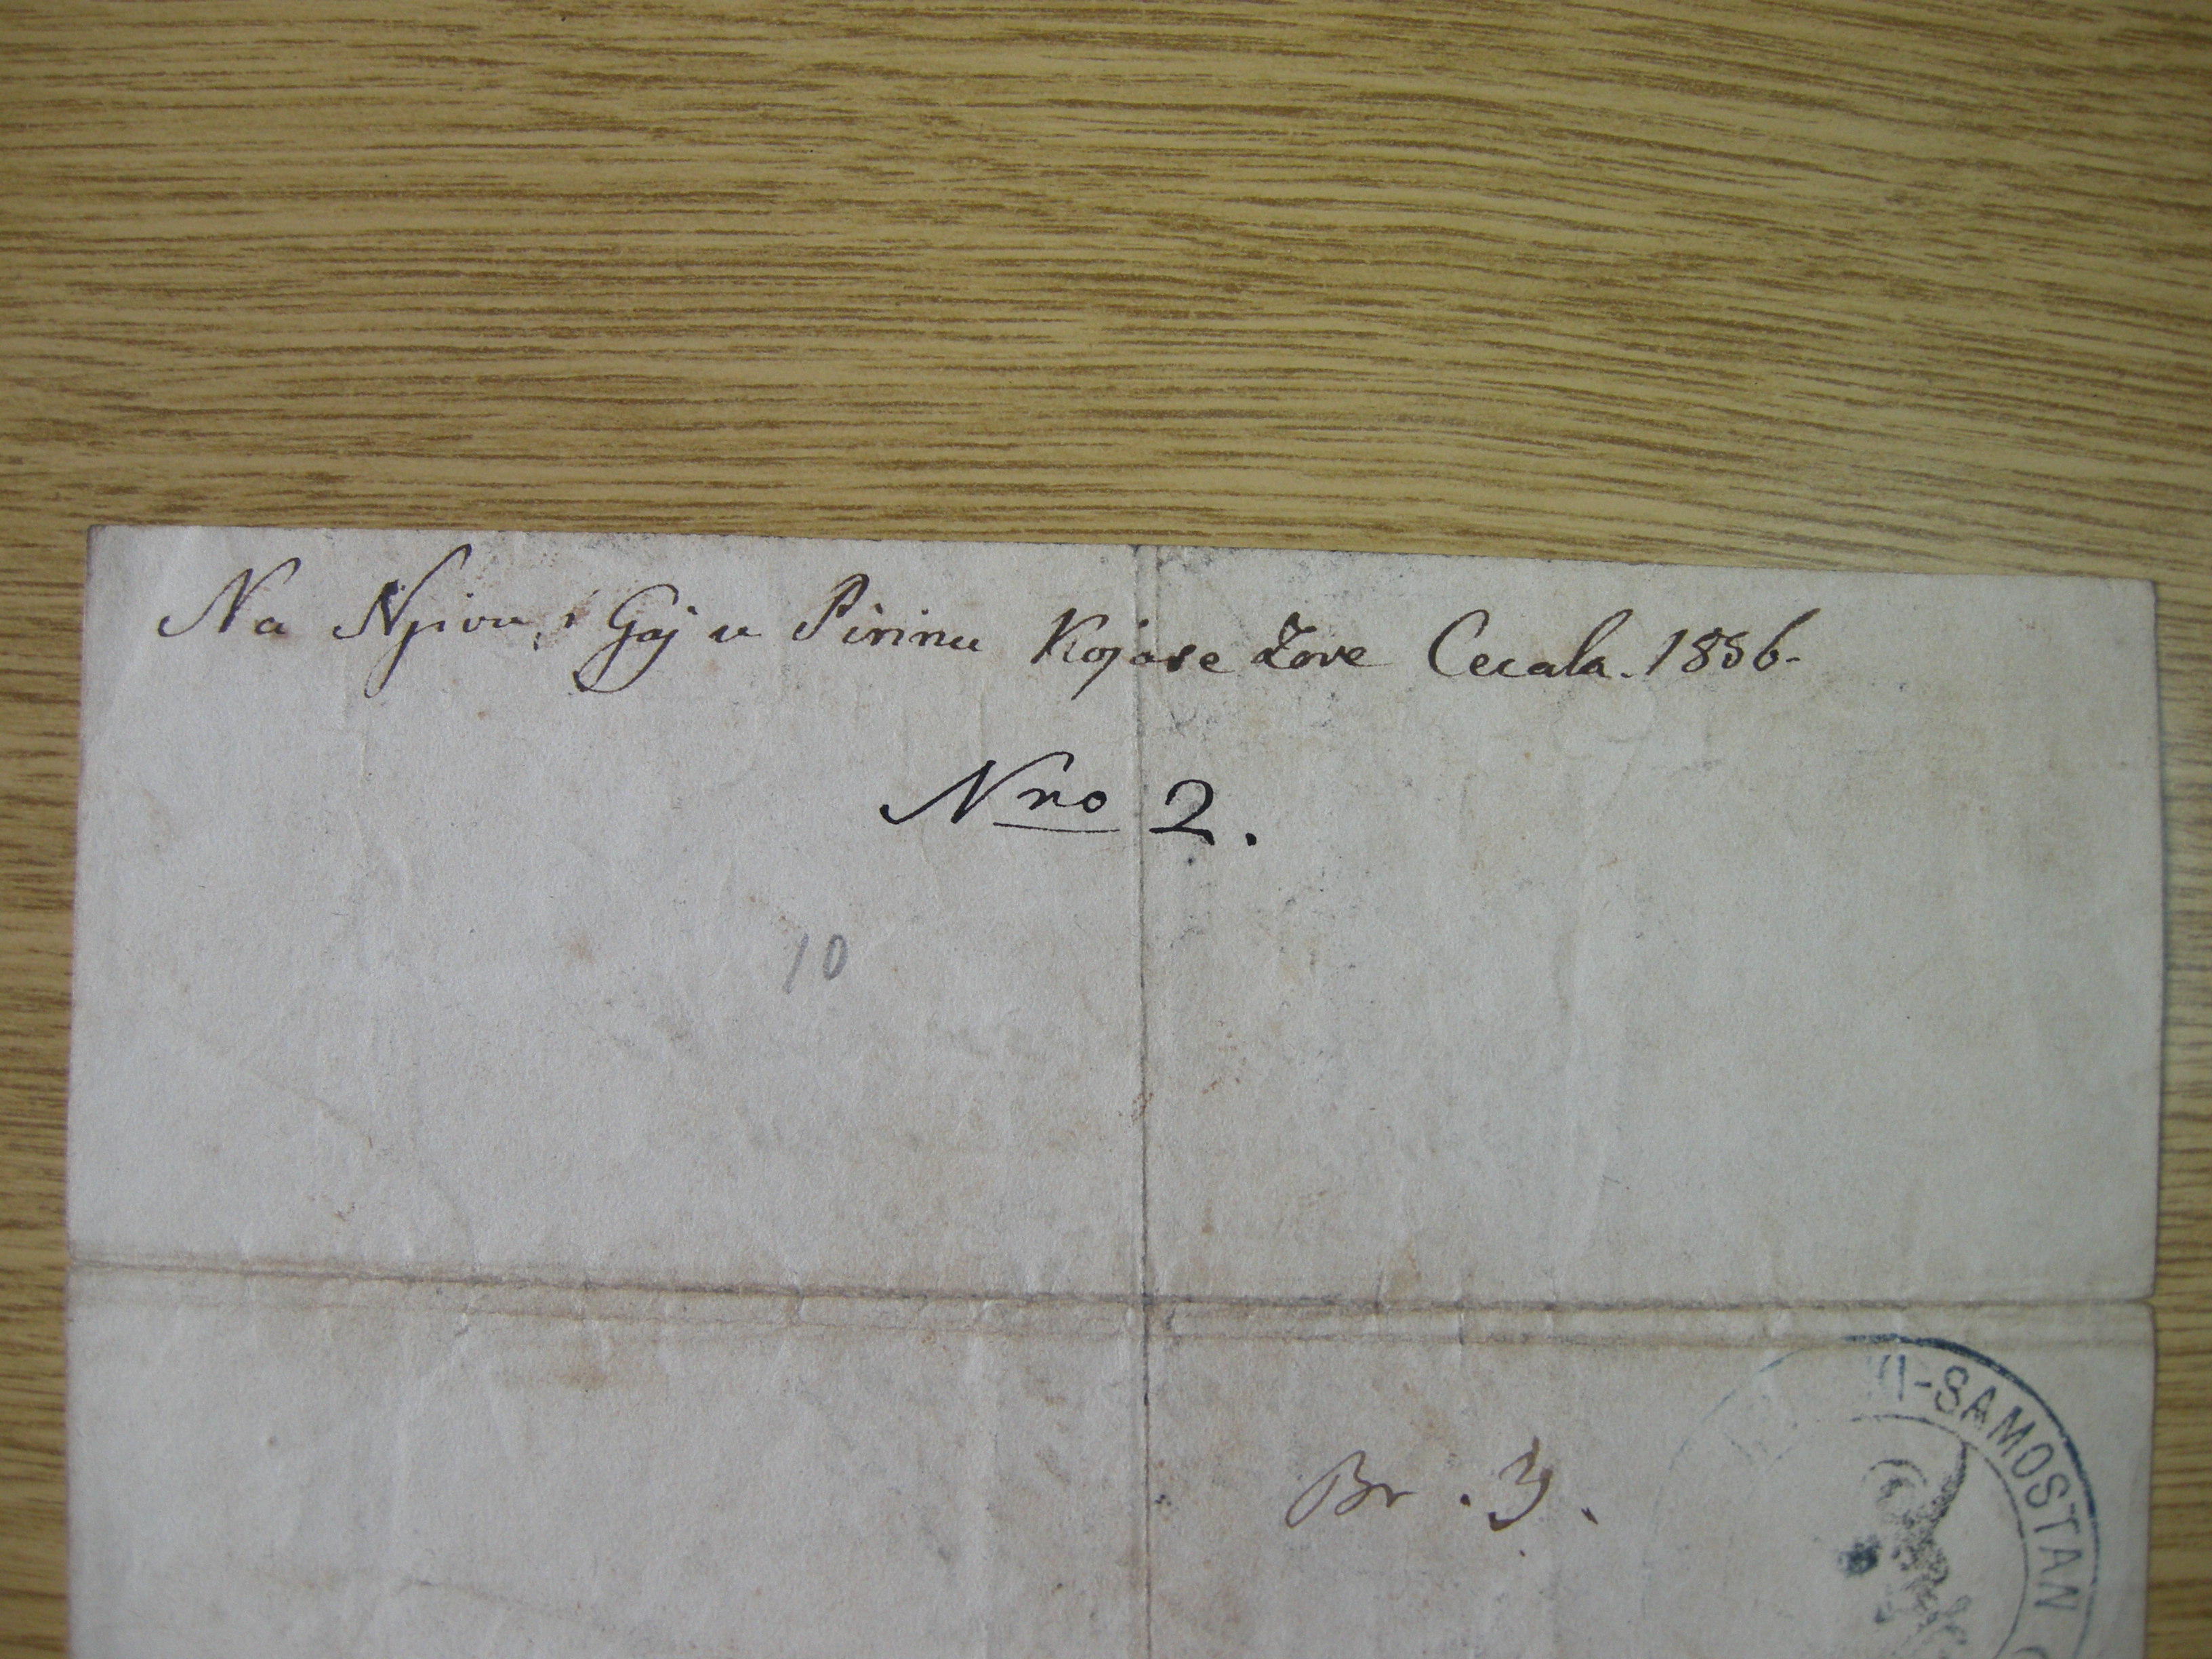 Na Njivu, i Gaj u Pirinu Kojase Zove Cecala. 1886.
Nro 2.
10
Br. 3.
KI-SAMOSTAN